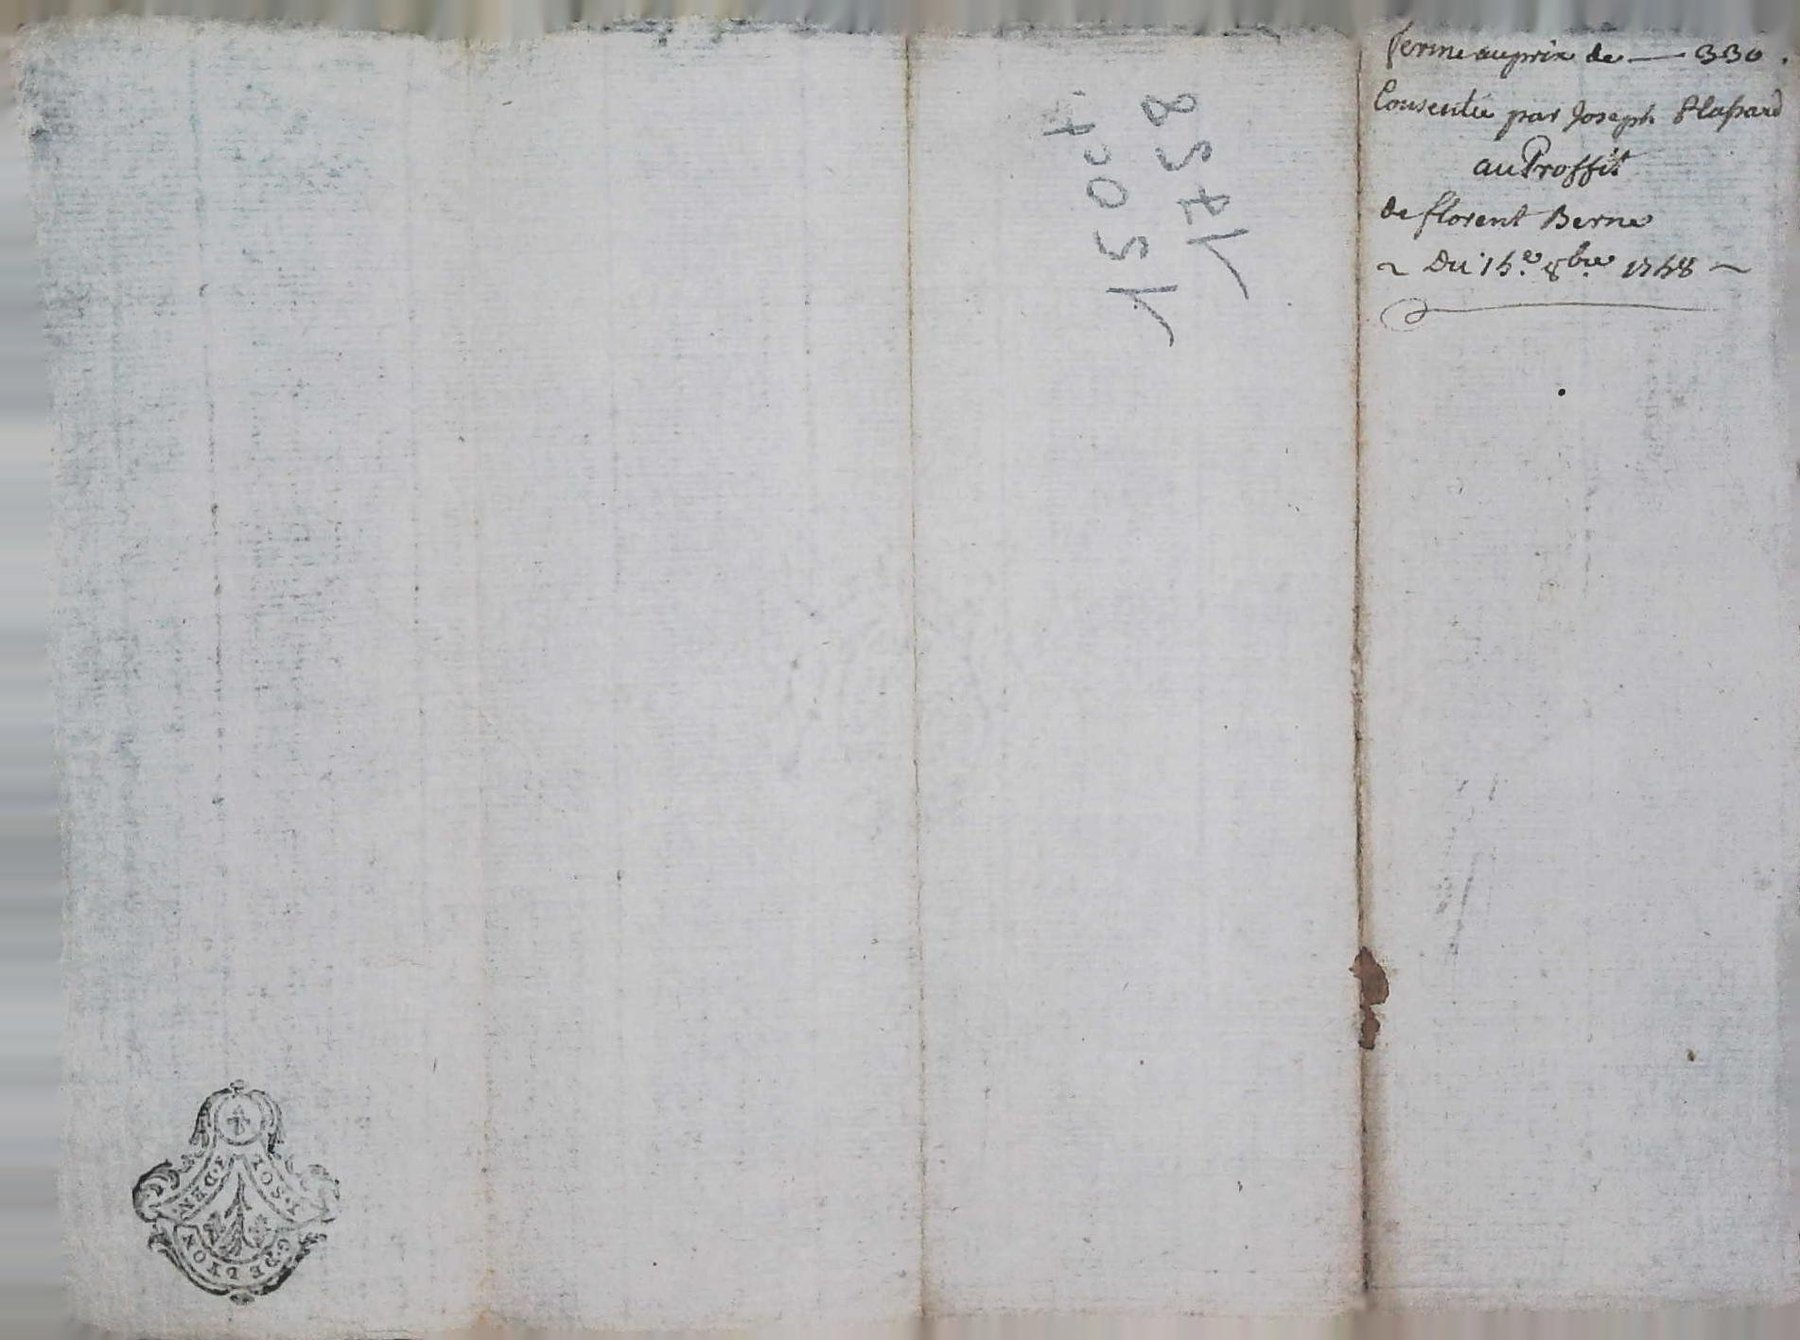 ferme au prix de — 330.
Consentie par Joseph Plassard
au Proffit
de florent Berne
~ Du 15.e 8bre 1758 ~
15 Oct.
1758
1.SOL
4.DEN
G. DE LYON